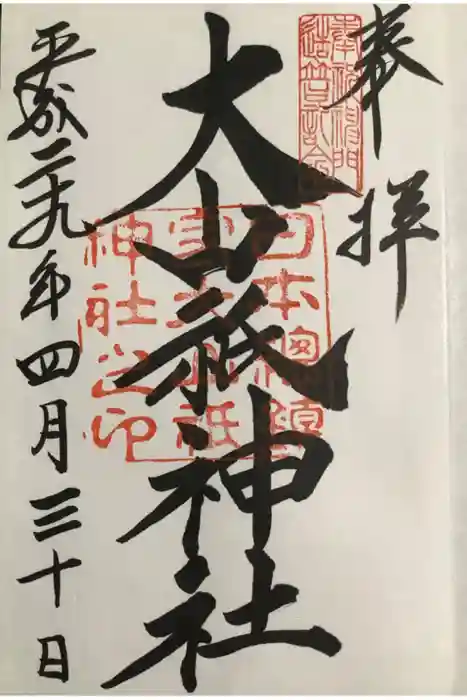 奉拝
大山祇神社
日本總鎮
守大山祇
神社之印
平成二十九年四月三十日